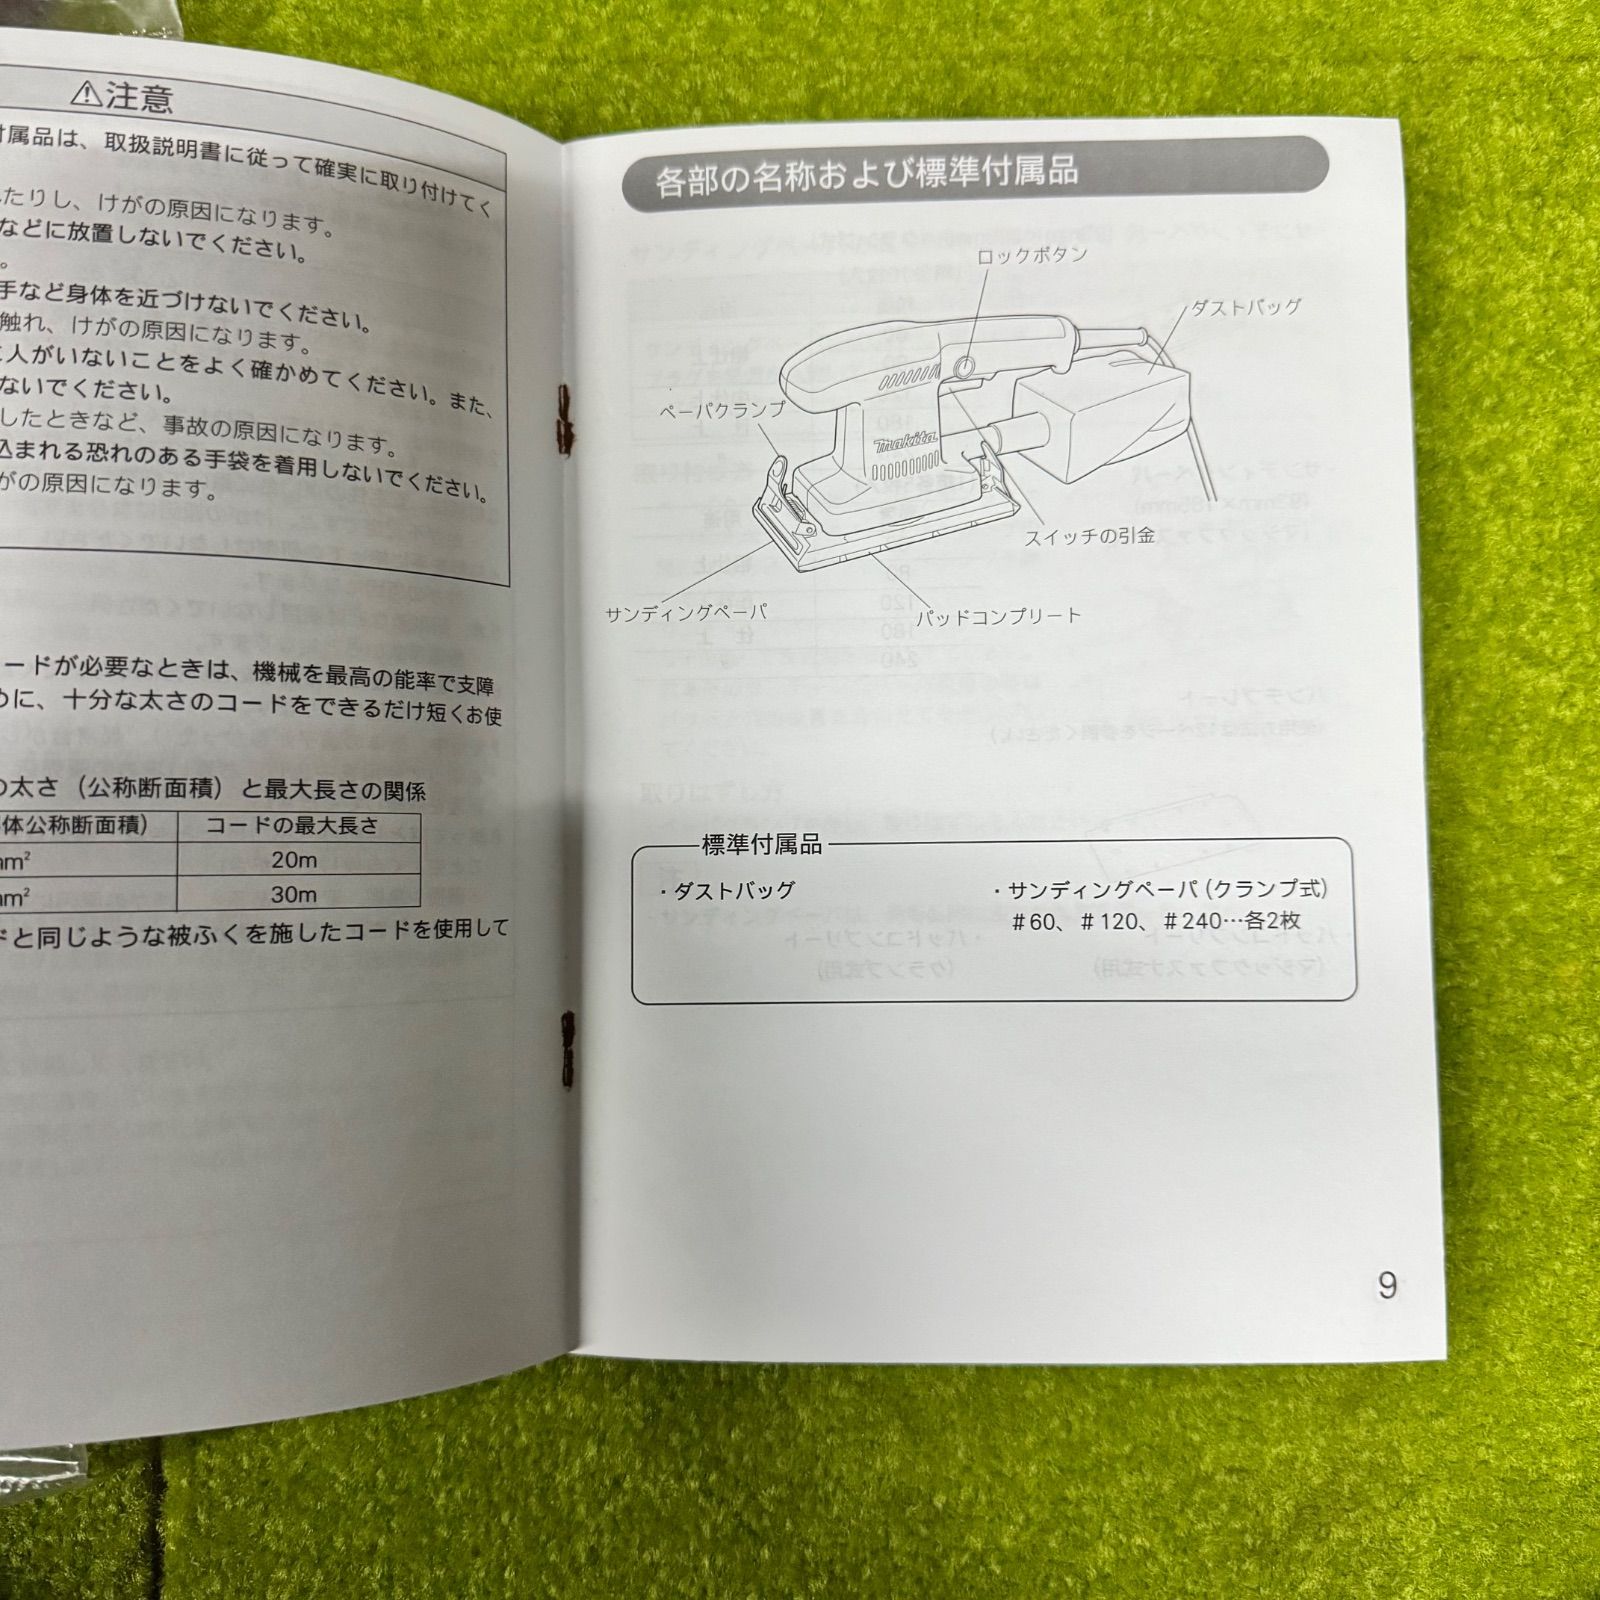 ⚠注意
付属品は、取扱説明書に従って確実に取り付けてく
たりし、けがの原因になります。
などに放置しないでください。
。
手など身体を近づけないでください。
触れ、けがの原因になります。
人がいないことをよく確かめてください。また、
ないでください。
したときなど、事故の原因になります。
込まれる恐れのある手袋を着用しないでください。
がの原因になります。
コードが必要なときは、機械を最高の能率で支障
めに、十分な太さのコードをできるだけ短くお使
の太さ（公称断面積）と最大長さの関係
体公称断面積） コードの最大長さ
mm² 20m
mm² 30m
ドと同じような被ふくを施したコードを使用して
各部の名称および標準付属品
ロックボタン
ダストバッグ
ペーパクランプ
makita
スイッチの引金
サンディングペーパ
パッドコンプリート
標準付属品
・ダストバッグ
・サンディングペーパ（クランプ式）
＃60、＃120、＃240…各2枚
9